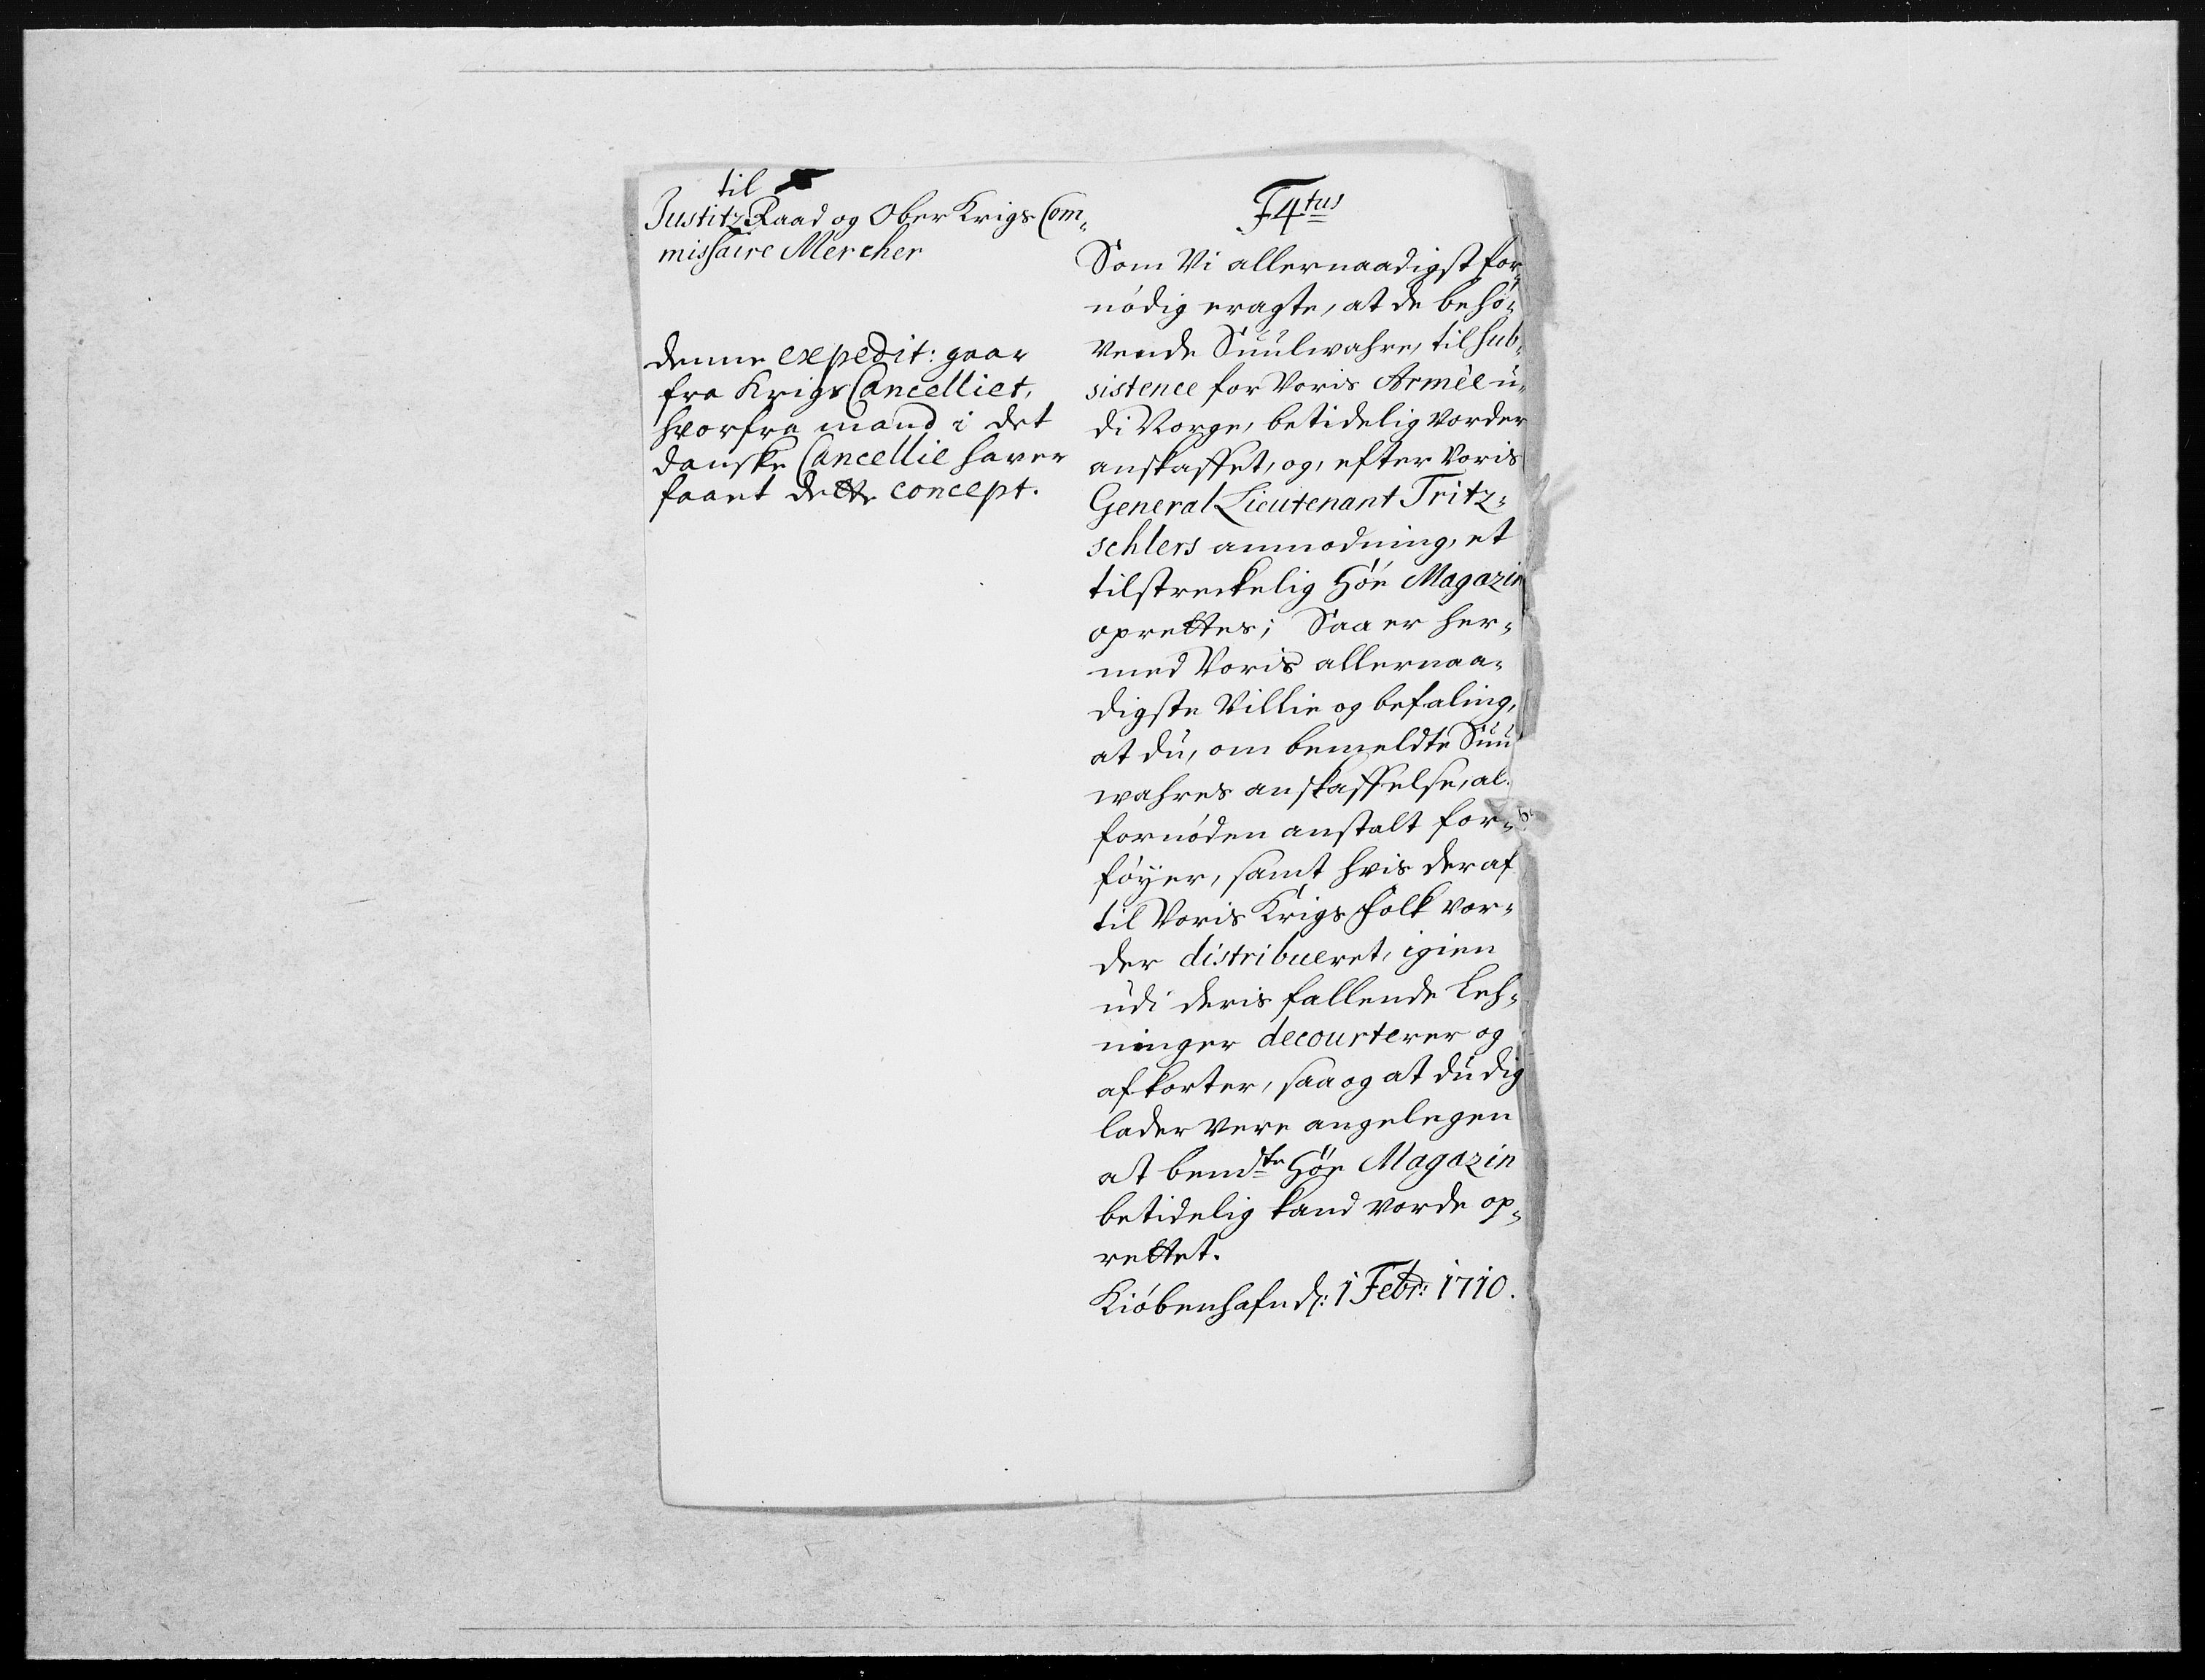 til
Justitz Raad og Ober Krigs Com¬
missaire Mercher
denne expedit: gaar
fra Krigs Cancelliet,
hvorfra mand i det
danske Cancellie haver
faaet dette concept.
F4tus
Som Vi allernaadigst for¬
nödig eragte, at de behö¬
vende Suulwahre, til sub¬
sistence for Voris Armèe u¬
di Norge, betidelig vorder
anskaffet, og, efter Voris
General Lieutenant Tritz¬
schlers anmodning, et
tilstreckelig Höe Magazin
oprettes; Saa er her¬
med Voris allernaa¬
digste Villie og befaling,
at du, om bemeldte Suul
wahres anskaffelse, al
fornöden anstalt for¬
föyer, samt hvis deraf
til Voris Krigsfolk vor¬
der distribueret, igien
udi deris fallende Leh¬
ninger decourterer og
afkorter, saa og at du dig
lader være angelegen
at bemdte Höe Magazin
betidelig kand vorde op¬
rettet.
Kiöbenhafn d: 1 Febr: 1710.